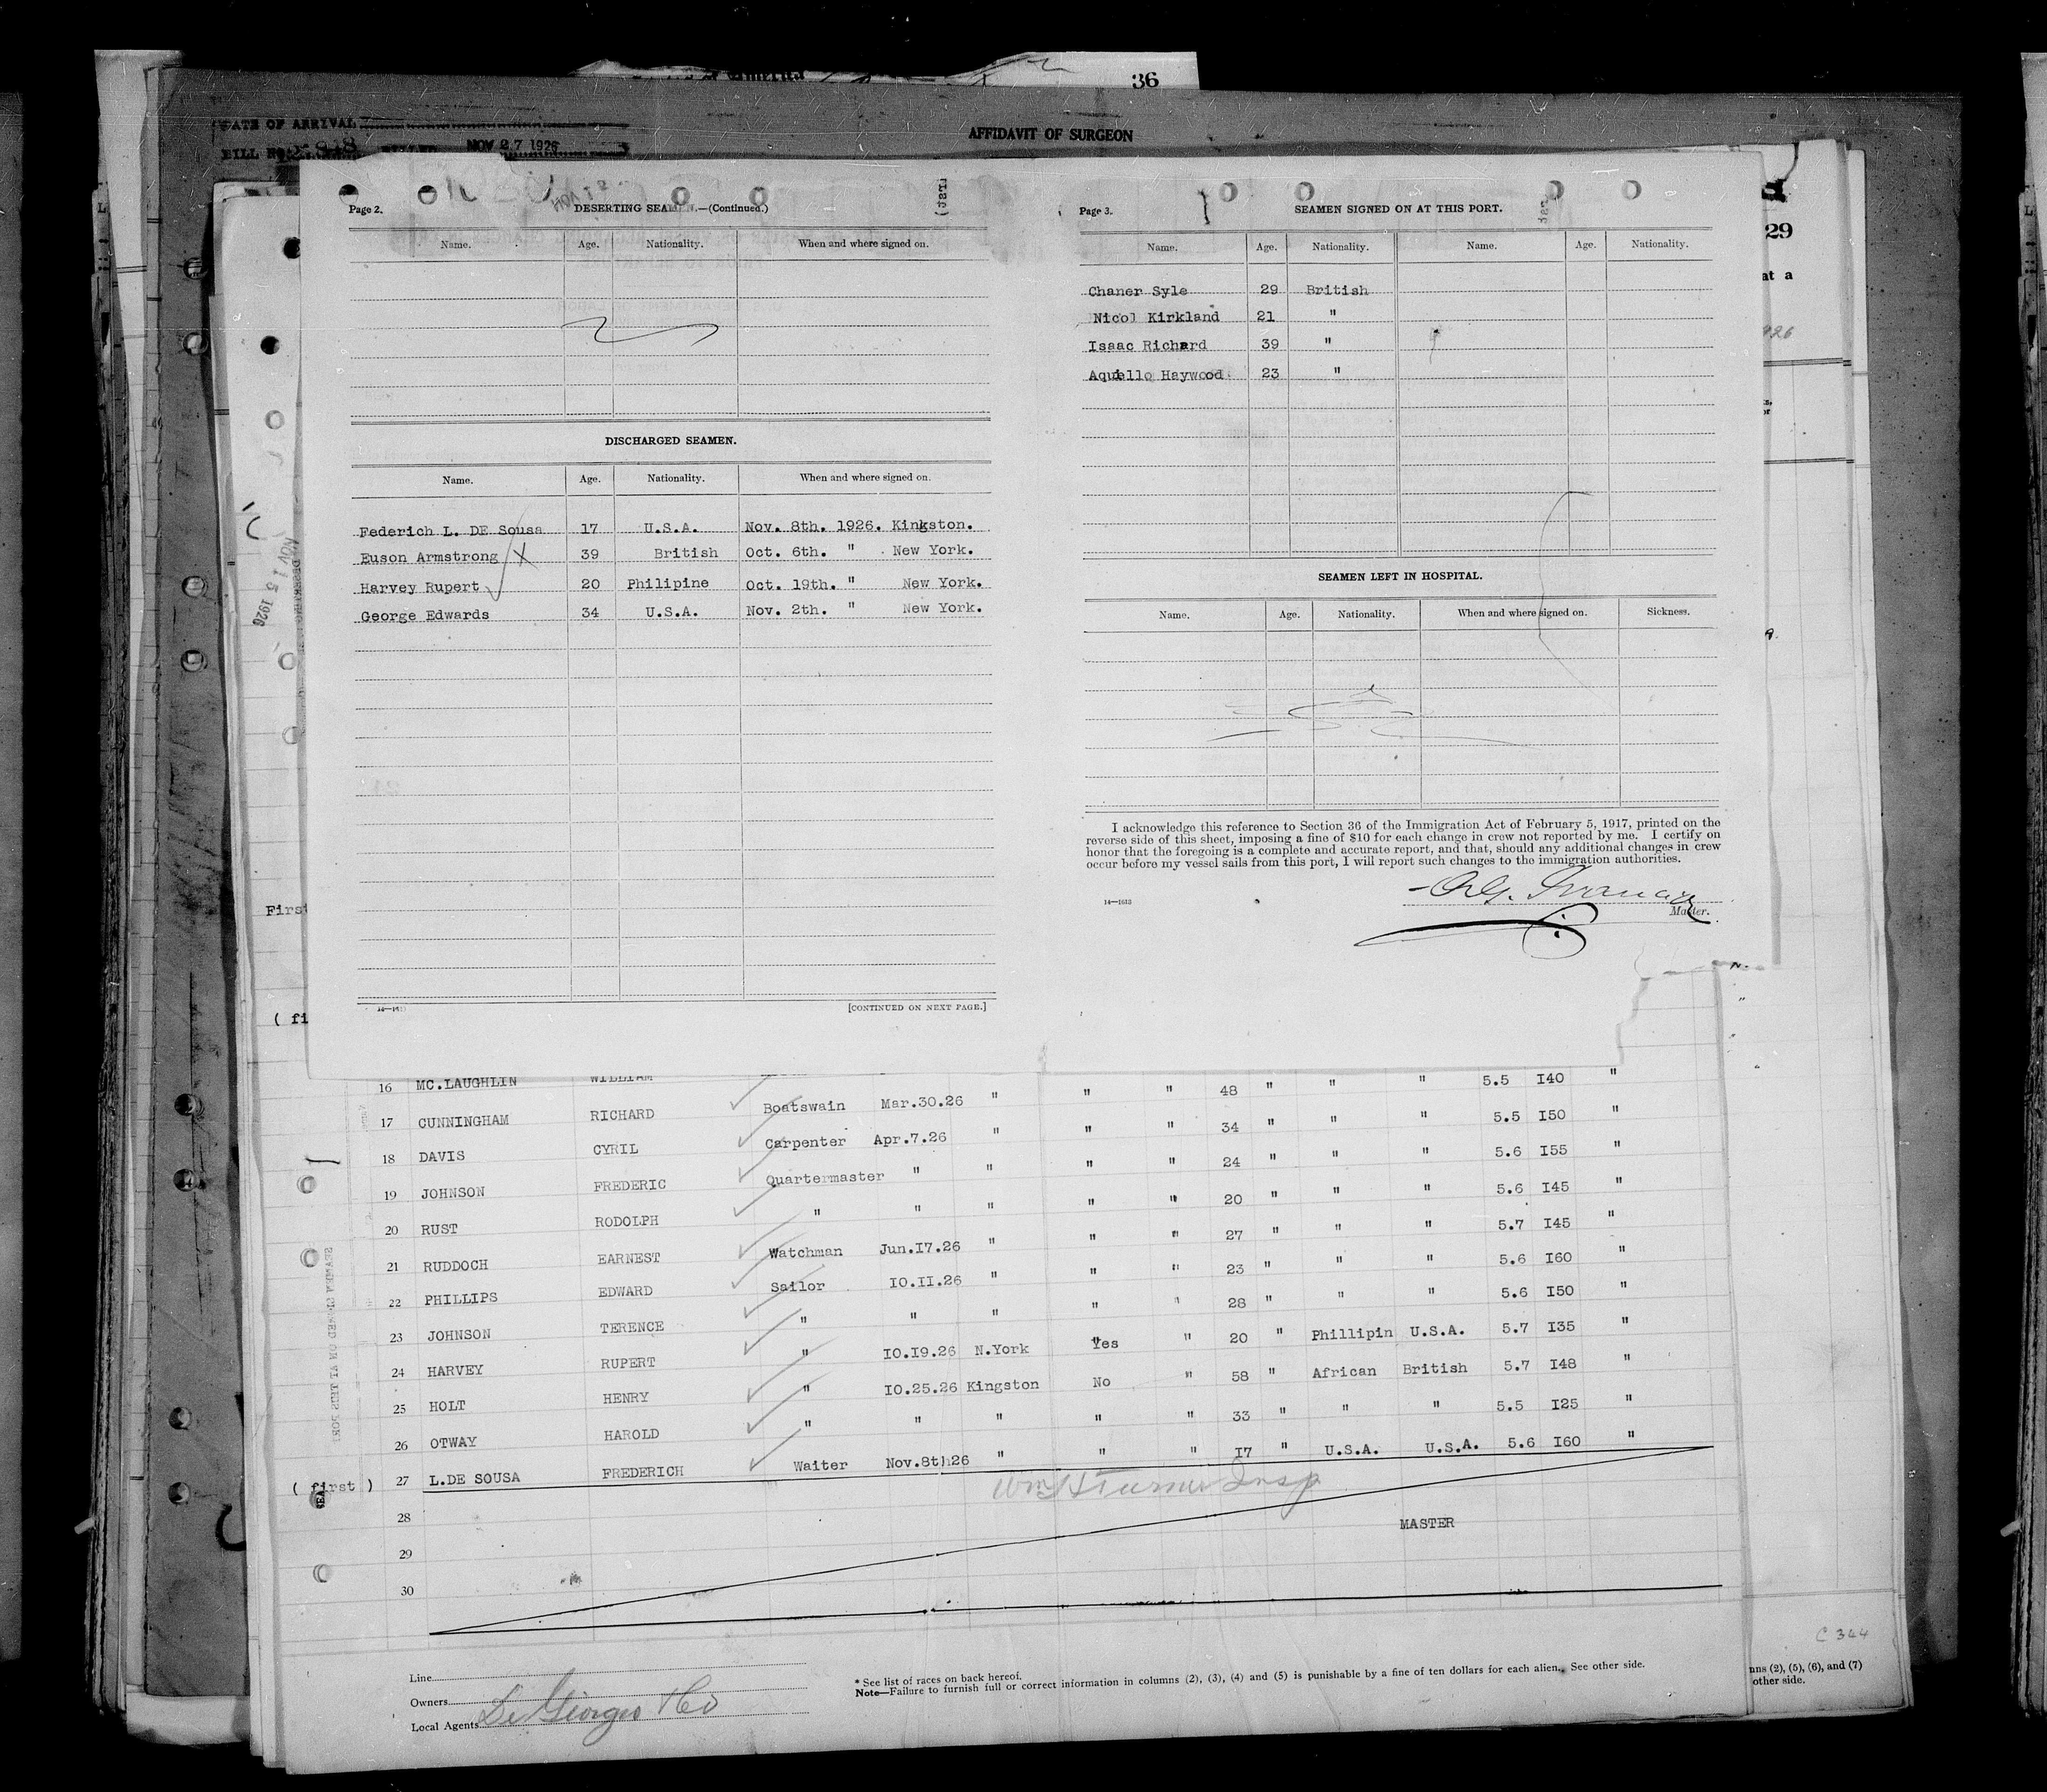 36
AFFIDAVIT OF SURGEON
DATE OF ARRIVAL
NOV 27 1926
29
at a
Page 2.
DESERTING SEAMEN.—(Continued.)
Name. Age. Nationality. When and where signed on.
DISCHARGED SEAMEN.
Name. Age. Nationality. When and where signed on.
Federich L. DE Sousa 17 U.S.A. Nov. 8th. 1926. Kingston.
Euson Armstrong X 39 British Oct. 6th. " New York.
Harvey Rupert 20 Philipine Oct. 19th. " New York.
George Edwards 34 U.S.A. Nov. 2th. " New York.
[CONTINUED ON NEXT PAGE.]
Page 3.
SEAMEN SIGNED ON AT THIS PORT.
Name. Age. Nationality. Name. Age. Nationality.
Chaner Syle 29 British
Nicol Kirkland 21 "
Isaac Richard 39 "
Aquello Haywood 23 "
SEAMEN LEFT IN HOSPITAL.
Name. Age. Nationality. When and where signed on. Sickness.
I acknowledge this reference to Section 36 of the Immigration Act of February 5, 1917, printed on the
reverse side of this sheet, imposing a fine of $10 for each change in crew not reported by me. I certify on
honor that the foregoing is a complete and accurate report, and that, should any additional changes in crew
occur before my vessel sails from this port, I will report such changes to the immigration authorities.
14—1613
Master.
NOV 15 1926
First
( fi
16 MC.LAUGHLIN WILLIAM " " " 48 " " " 5.5 I40 "
17 CUNNINGHAM RICHARD Boatswain Mar.30.26 " " " 34 " " " 5.5 I50 "
18 DAVIS CYRIL Carpenter Apr.7.26 " " " 24 " " " 5.6 I55 "
19 JOHNSON FREDERIC Quartermaster " " " " 20 " " " 5.6 I45 "
20 RUST RODOLPH " " " " " 27 " " " 5.7 I45 "
21 RUDDOCH EARNEST Watchman Jun.I7.26 " " " 23 " " " 5.6 I60 "
22 PHILLIPS EDWARD Sailor IO.II.26 " " " 28 " " " 5.6 I50 "
23 JOHNSON TERENCE " " " Yes " 20 " Phillipin U.S.A. 5.7 I35 "
24 HARVEY RUPERT " IO.I9.26 N.York No " 58 " African British 5.7 I48 "
25 HOLT HENRY " IO.25.26 Kingston " " 33 " " " 5.5 I25 "
26 OTWAY HAROLD " " " " " I7 " U.S.A. U.S.A. 5.6 I60 "
( first ) 27 L.DE SOUSA FREDERICH Waiter Nov.8th26 "
Wm H Turner Insp
28
MASTER
29
30
C 344
Line
Owners
Local Agents Di Giorgio & Co
* See list of races on back hereof.
Note—Failure to furnish full or correct information in columns (2), (3), (4) and (5) is punishable by a fine of ten dollars for each alien. See other side.
nns (2), (5), (6), and (7)
other side.